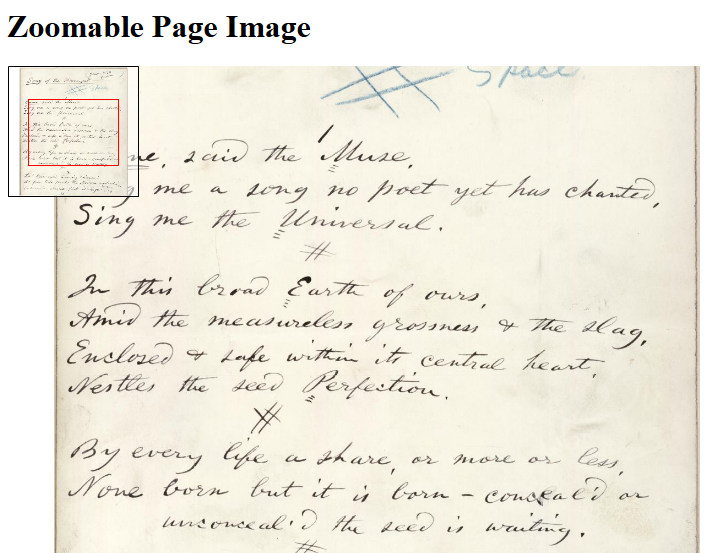 Zoomable Page Image
Space
1
me, said the Muse,
me a song no poet yet has chanted,
Sing me the Universal.
#
In this broad Earth of ours,
Amid the measureless grossness & the slag,
Enclosed & safe within its central heart,
Nestles the seed Perfection.
#
By every life a share, or more or less,
None born but it is born – conceal'd or
unconceal'd the seed is waiting.
#